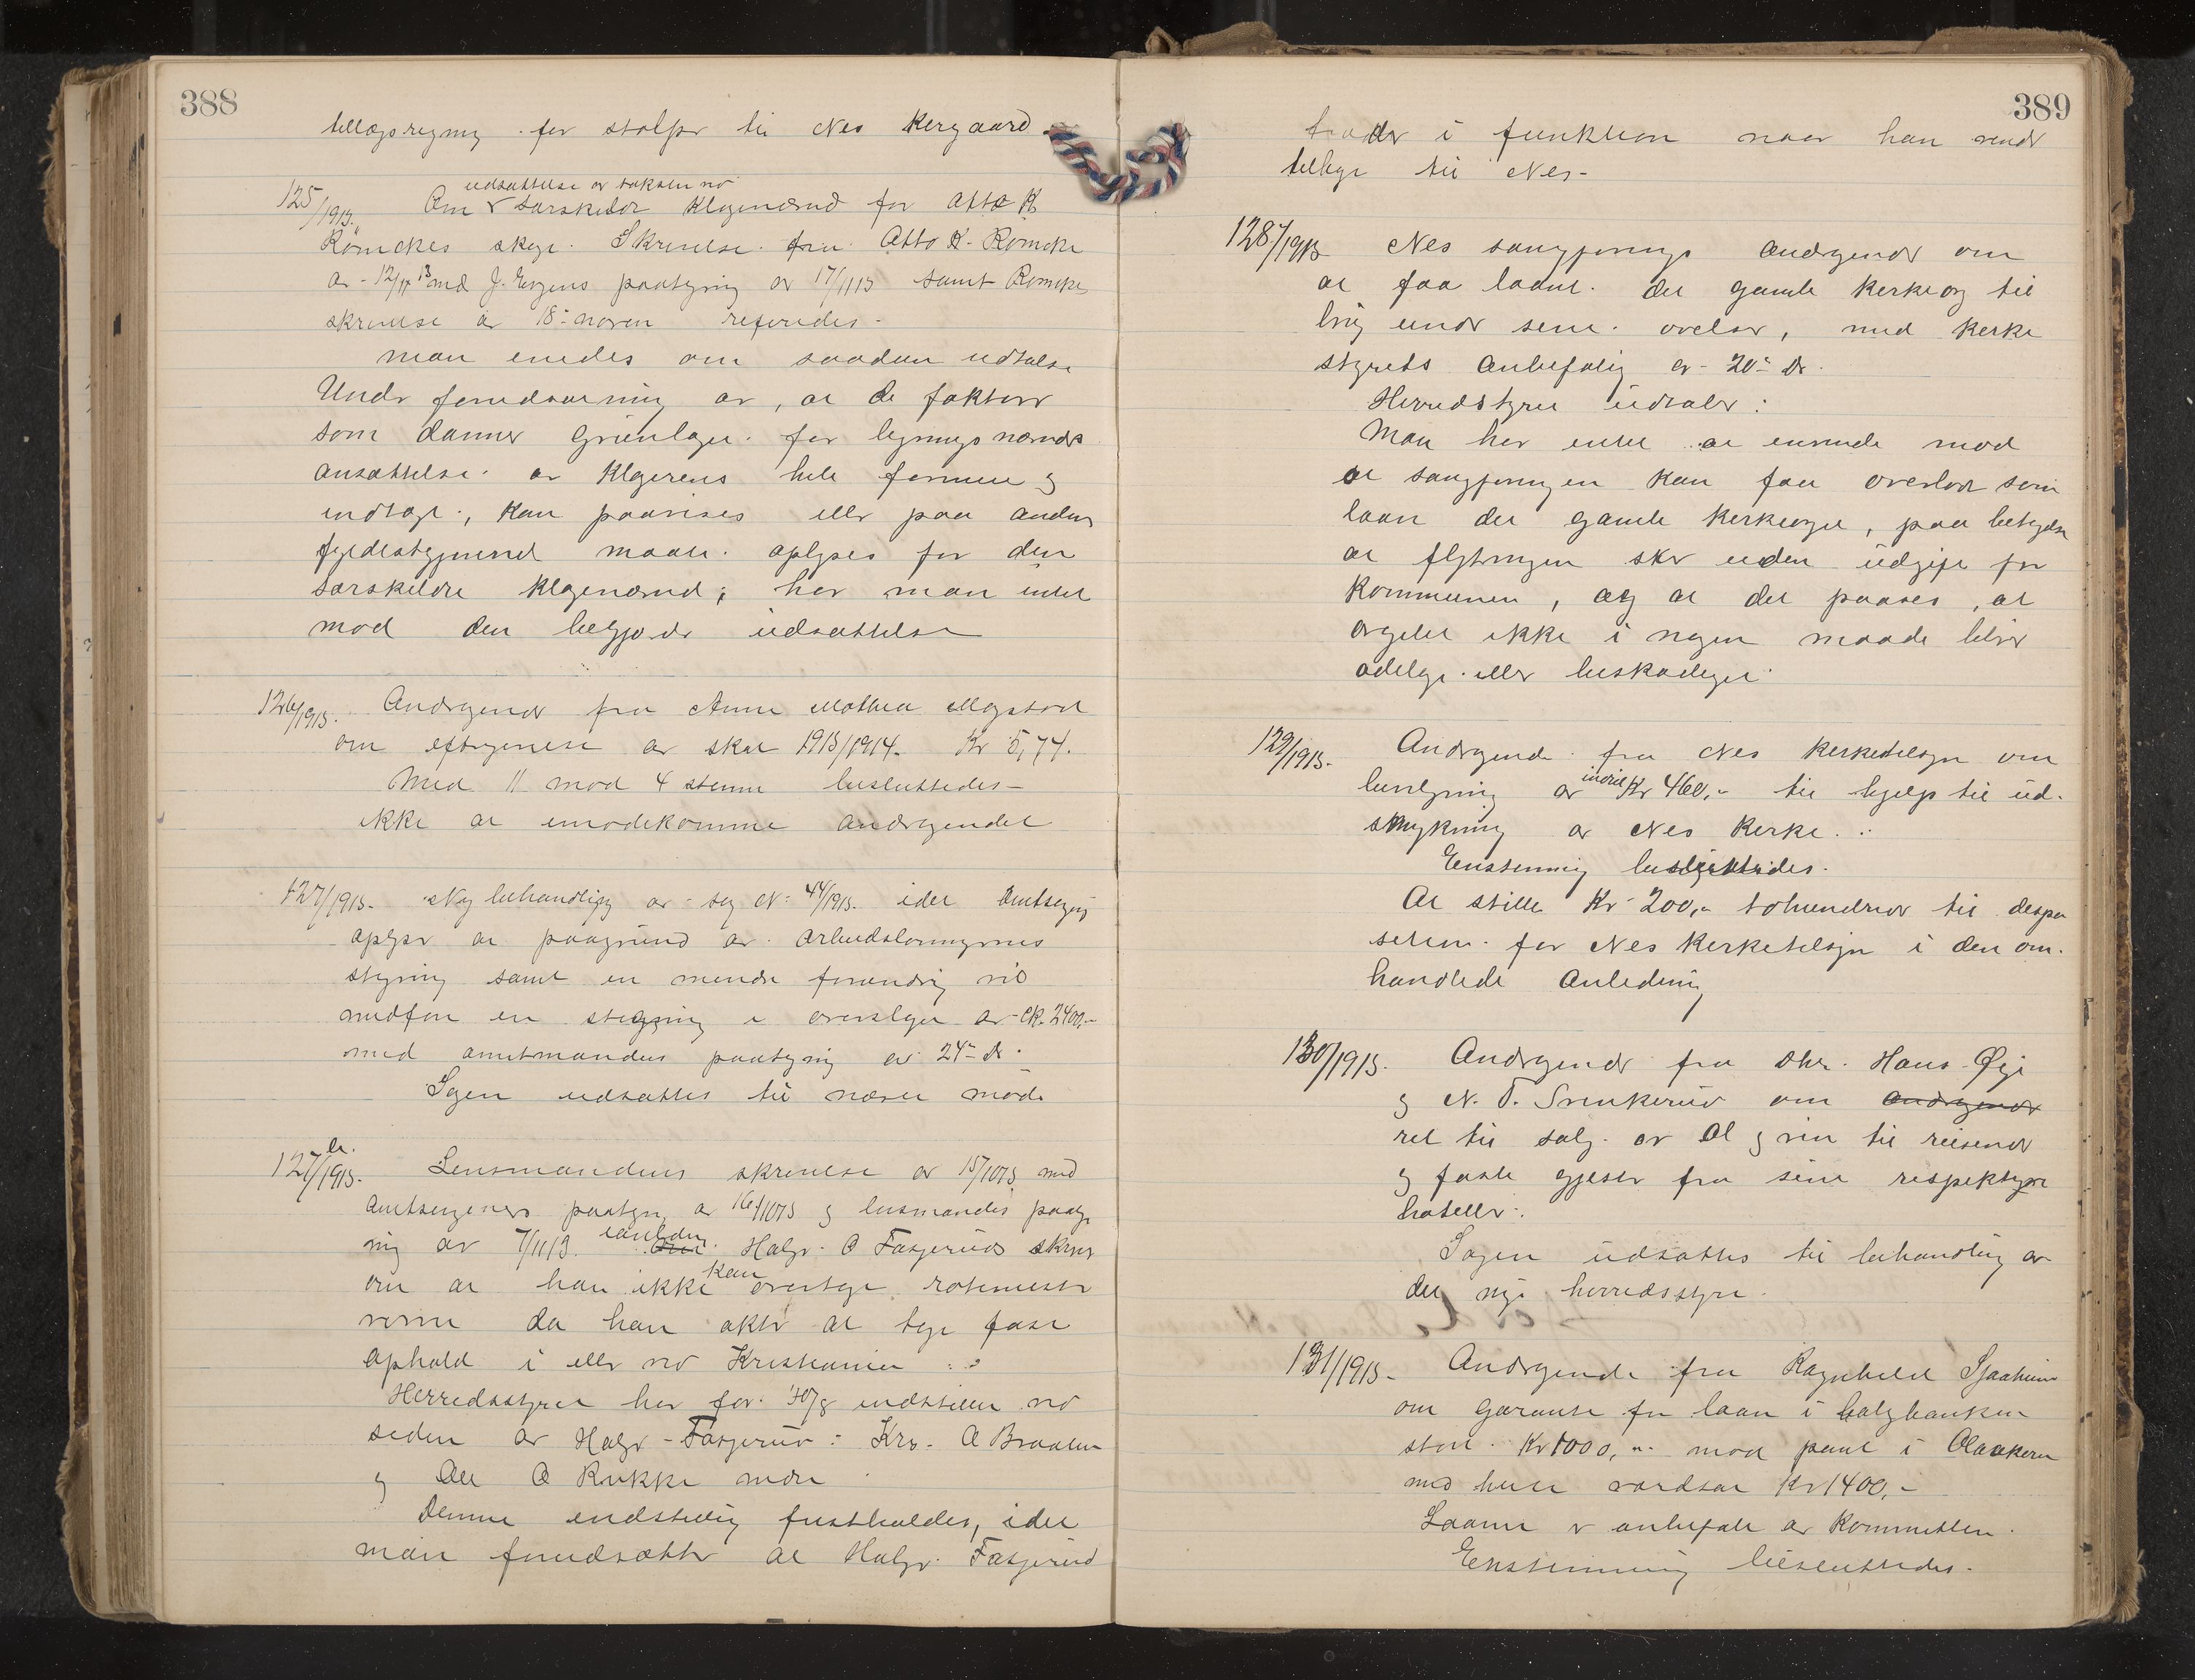 388
tillægsregning for stolper til Nes Kirgaard.
udsættelse av taksten ved
125/1913. Om særskildt Klagenævnd for Otto K
Römckes skoge. Skrivelse fra Otto K. Römcke
av 12/11 13 med J. Ergens paategning av 17/11 13 samt Römckes
skrivelse av 18- novem refereredes.
Man enedes om saadan udtalelse
Under forudsætning av, at de faktorer
som danner Grundlaget for ligningsnævndets
ansættelse av Klagerens hele formue og
indtægt, kan paavises eller paa anden
fyldestgjørend maate oplyses for den
særskildte Klagenævnd; har man intet
mod den begjærte udsættelse
126/1913. Andragende fra Anne Mathea
om eftergivelse av skat 1913/1914. Kr 5,74.
Med 11 mod 4 stemmer besluttedes
ikke at imødekomme andragendet
127/1913. Ny behandling av sag N: 44/1913. idet Amtsing
oplyser at paagrund av Arbeidslønningernes
stigning samt en mindre forandring vil
medføre en stigning i overslaget av Kr. 2400,-
med amtmandens paategning av 24- ds.
Sagen udsattes til næste møde
127 b./1913. Lensmandens skrivelse av 15/10 13 med
Amtsingeniørens paategn. av 16/10 13 og lensmandes paateg
ning av 7/11 13. Halgr. O Fasjeruds skriv
om at han ikke kan overtage rotemester
da han akter at tage fast
ophold i eller ved Kristiania
Herredsstyret har før 30/8 indstillet ved
siden av Halgr. Fasjerud: Kr. O Braaten
og Ole O Rukke
Denne indstilling fastholdes, idet
man forudsætter at Halgr. Fasjerud
389
træder i funktion naar han vender
tilbage til Nes-
128/1913 Nes sangforenings Andragende om
at faa laant det gamle Kirkeorg til
brug under sine øvelser, med Kirke
styrets Anbefaling av 20- ds.
Herredstyret udtaler:
Man har intet at invende mod
at sangforeningen kan faa overladt som
laan det gamle Kirkeorgel, paa betingelse
at flytningen sker uden udgift for
Kommunen, og at det paases, at
orgelet ikke i nogen maade bliver
ødelagt eller beskadiget.
129/1913. Andragende fra Nes Kirketilsyn om
bevilgning av indtil Kr 460,- til hjælp til ud-
smykning av Nes Kirke.
Enstemmig besluttedes.
At stille Kr 200,- tohundrede til dispo
sition for Nes Kirketilsyn i den om-
handlede Anledning
130/1913. Andragende fra Hans Øye
og N. T. Svenkerud om Andragende
ret til salg av Øl og vin til reisende
og faste gjester fra sine respektive
hoteller.
Sagen udsattes til behandling av
det nye herredsstyre.
131/1913. Andragende fra Ragnhild Sjaaheim
om Garanti for laan i
stort Kr 1000,- mod pant i
med huse værdsat Kr 1400,-
Laanet er anbefalt av Kommitteen.
Enstemmig besluttedes.